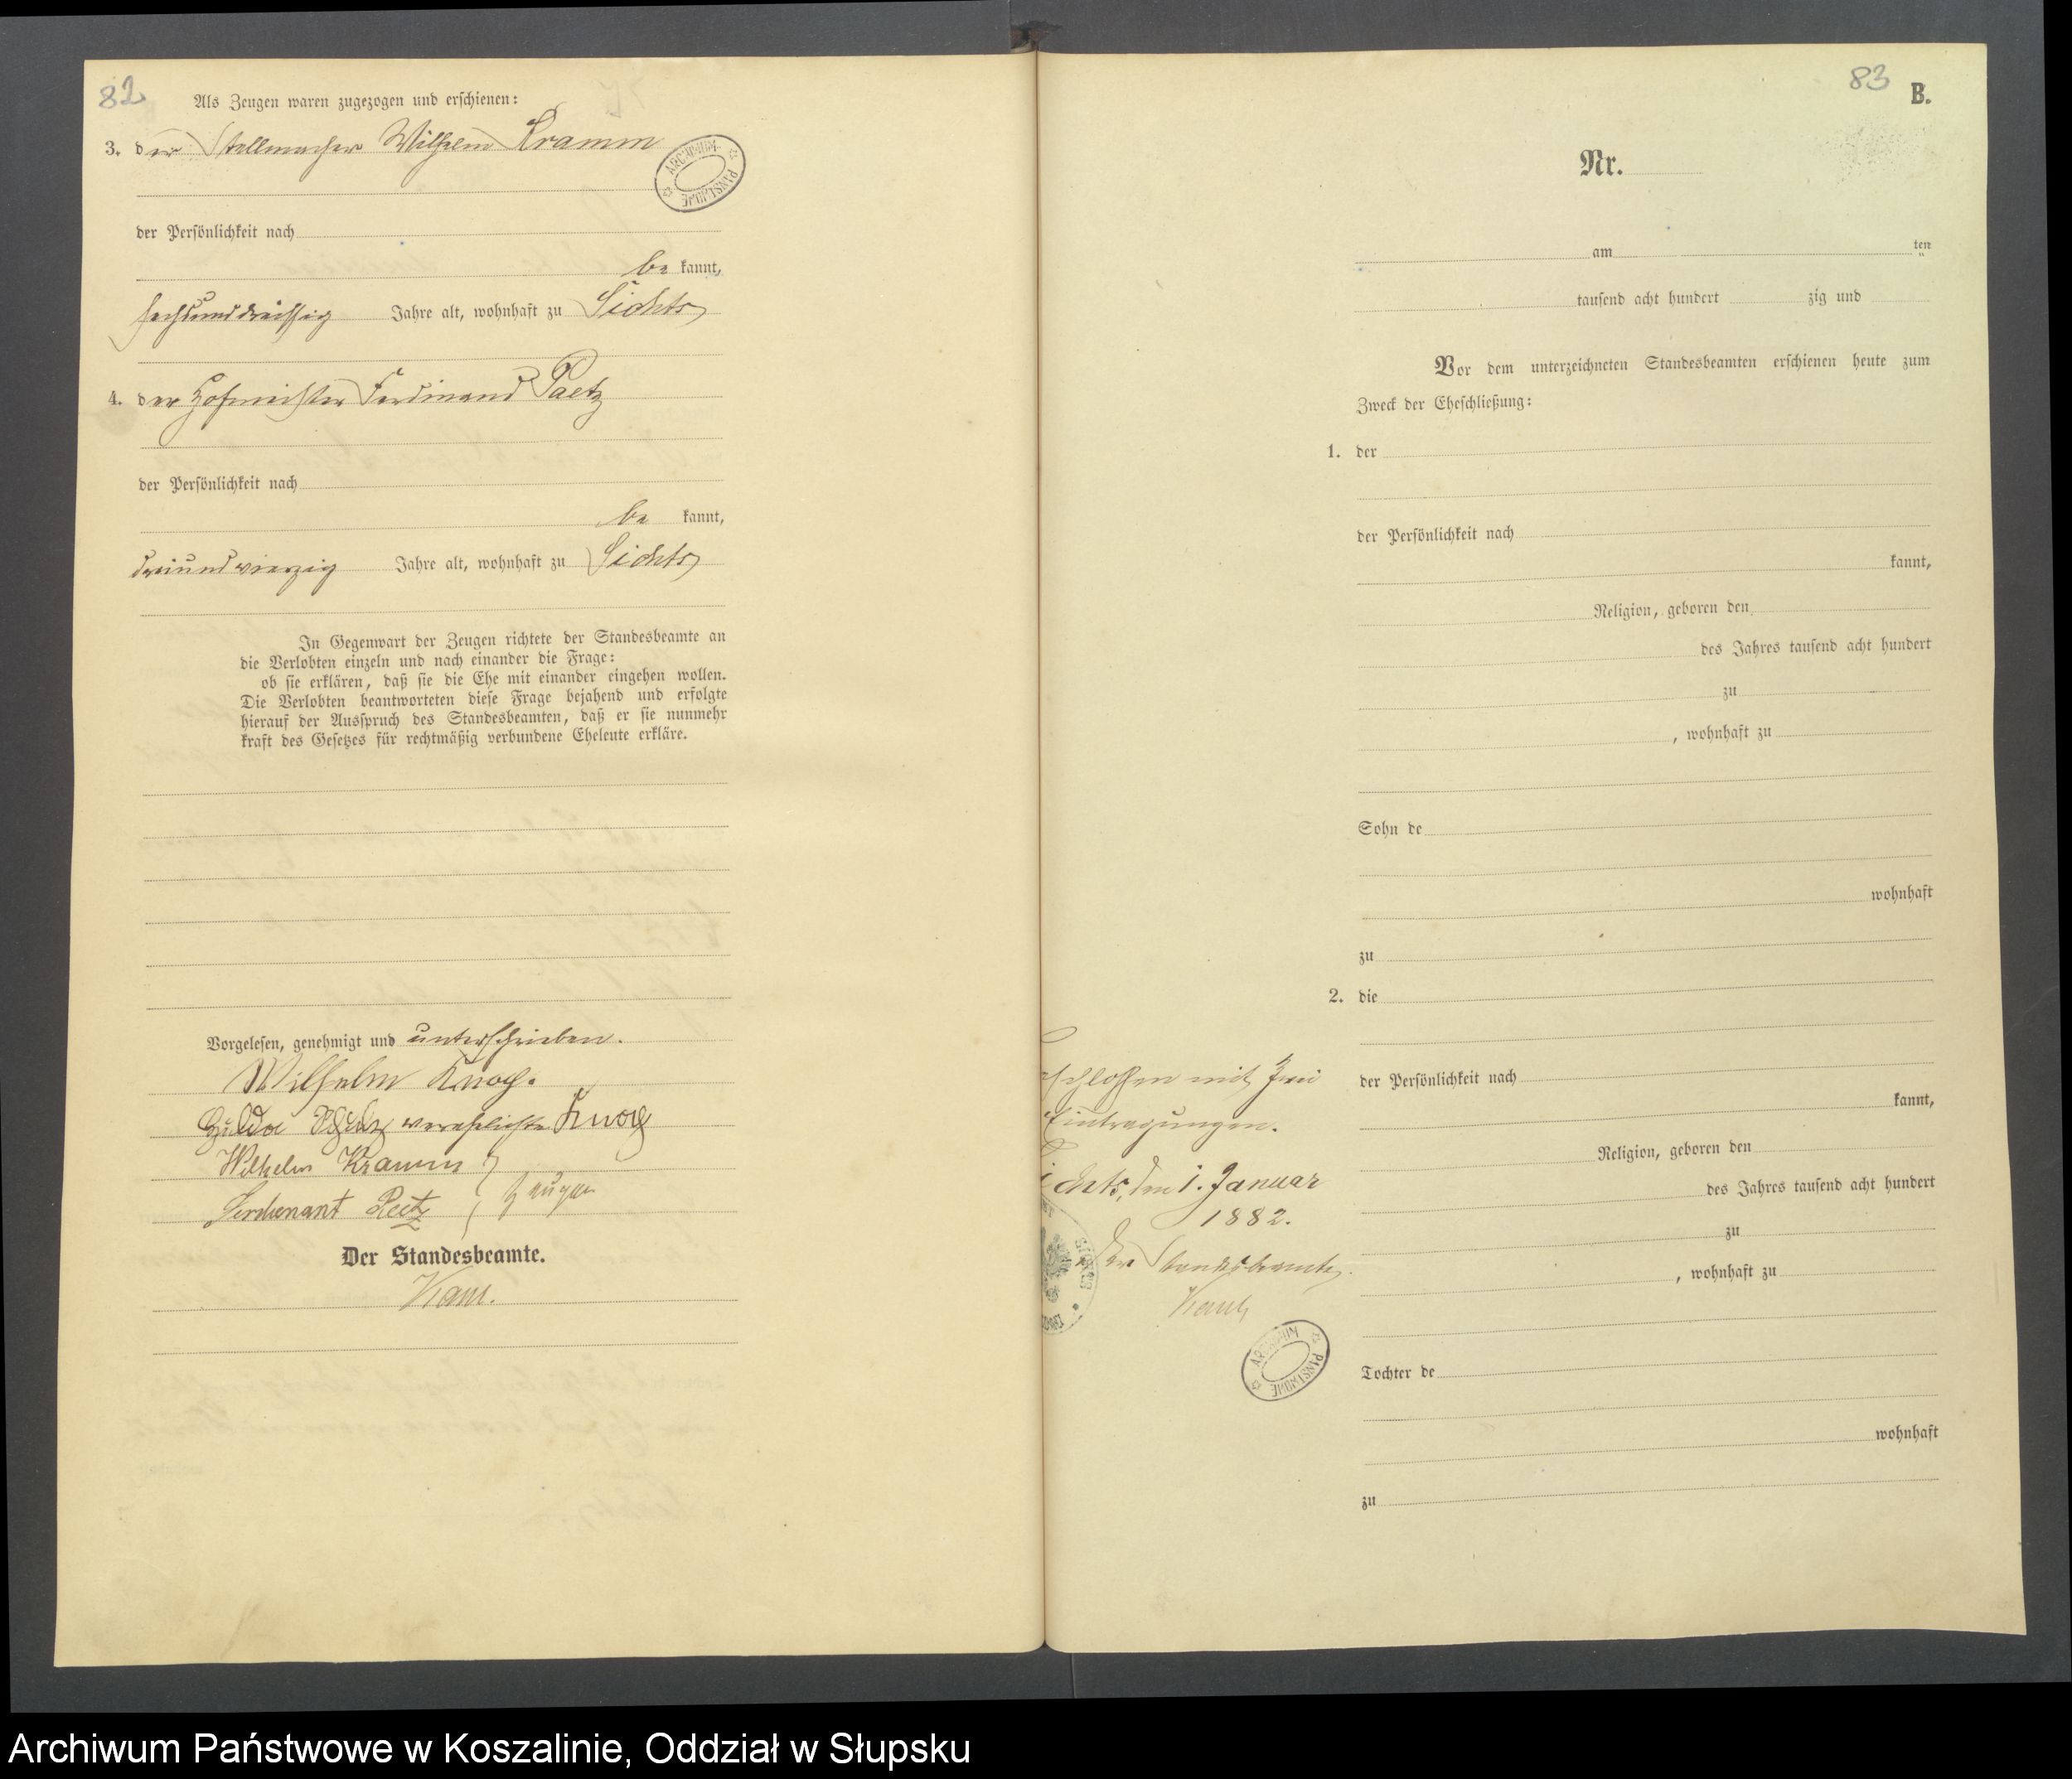 82
Als Zeugen waren zugezogen und erschienen:
3. der Stellmacher Wilhelm Kramm
ARCHIWUM PAŃSTWOWE
der Persönlichkeit nach
be kannt,
sechsunddreißig Jahre alt, wohnhaft zu Sichts
4. der Hofmeister Ferdinand Paetz
der Persönlichkeit nach
be kannt,
dreiundvierzig Jahre alt, wohnhaft zu Sichts
In Gegenwart der Zeugen richtete der Standesbeamte an
die Verlobten einzeln und nach einander die Frage:
ob sie erklären, daß sie die Ehe mit einander eingehen wollen.
Die Verlobten beantworteten diese Frage bejahend und erfolgte
hierauf der Ausspruch des Standesbeamten, daß er sie nunmehr
kraft des Gesetzes für rechtmäßig verbundene Eheleute erkläre.
Vorgelesen, genehmigt und unterschrieben.
Wilhelm Knog.
verehelichte Knog
Wilhelm Kramm
Zeugen
Der Standesbeamte.
83
B.
Nr.
am ten
tausend acht hundert zig und
Vor dem unterzeichneten Standesbeamten erschienen heute zum
Zweck der Eheschließung:
1. der
der Persönlichkeit nach
kannt,
Religion, geboren den
des Jahres tausend acht hundert
zu
, wohnhaft zu
Sohn de
wohnhaft
zu
2. die
der Persönlichkeit nach
kannt,
Religion, geboren den
des Jahres tausend acht hundert
zu
, wohnhaft zu
Tochter de
wohnhaft
zu
schlossen mit zwei
Eintragungen.
ichts, den 1. Januar
1882.
Der Standesbeamte.
ARCHIWUM PAŃSTWOWE
Archiwum Państwowe w Koszalinie, Oddział w Słupsku